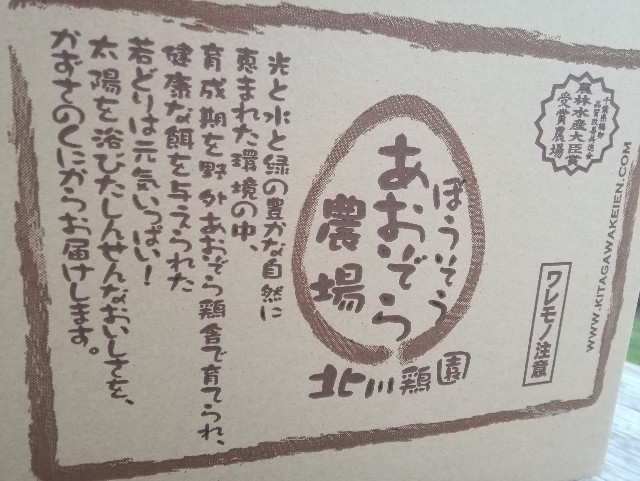 千葉県鶏卵
品質改善共進会
農林水産大臣賞
受賞農場
WWW.KITAGAWAKEIEN.COM
ワレモノ注意
ぼうそう
あおぞら
農場
北川鶏園
光と水と緑の豊かな自然に
恵まれた環境の中
育成期を野外あおぞら鶏舎で育てられ、
健康な餌を与えられた
若どりは元気いっぱい!
太陽を浴びたしんせんなおいしさを、
かずさのくにからお届けします。